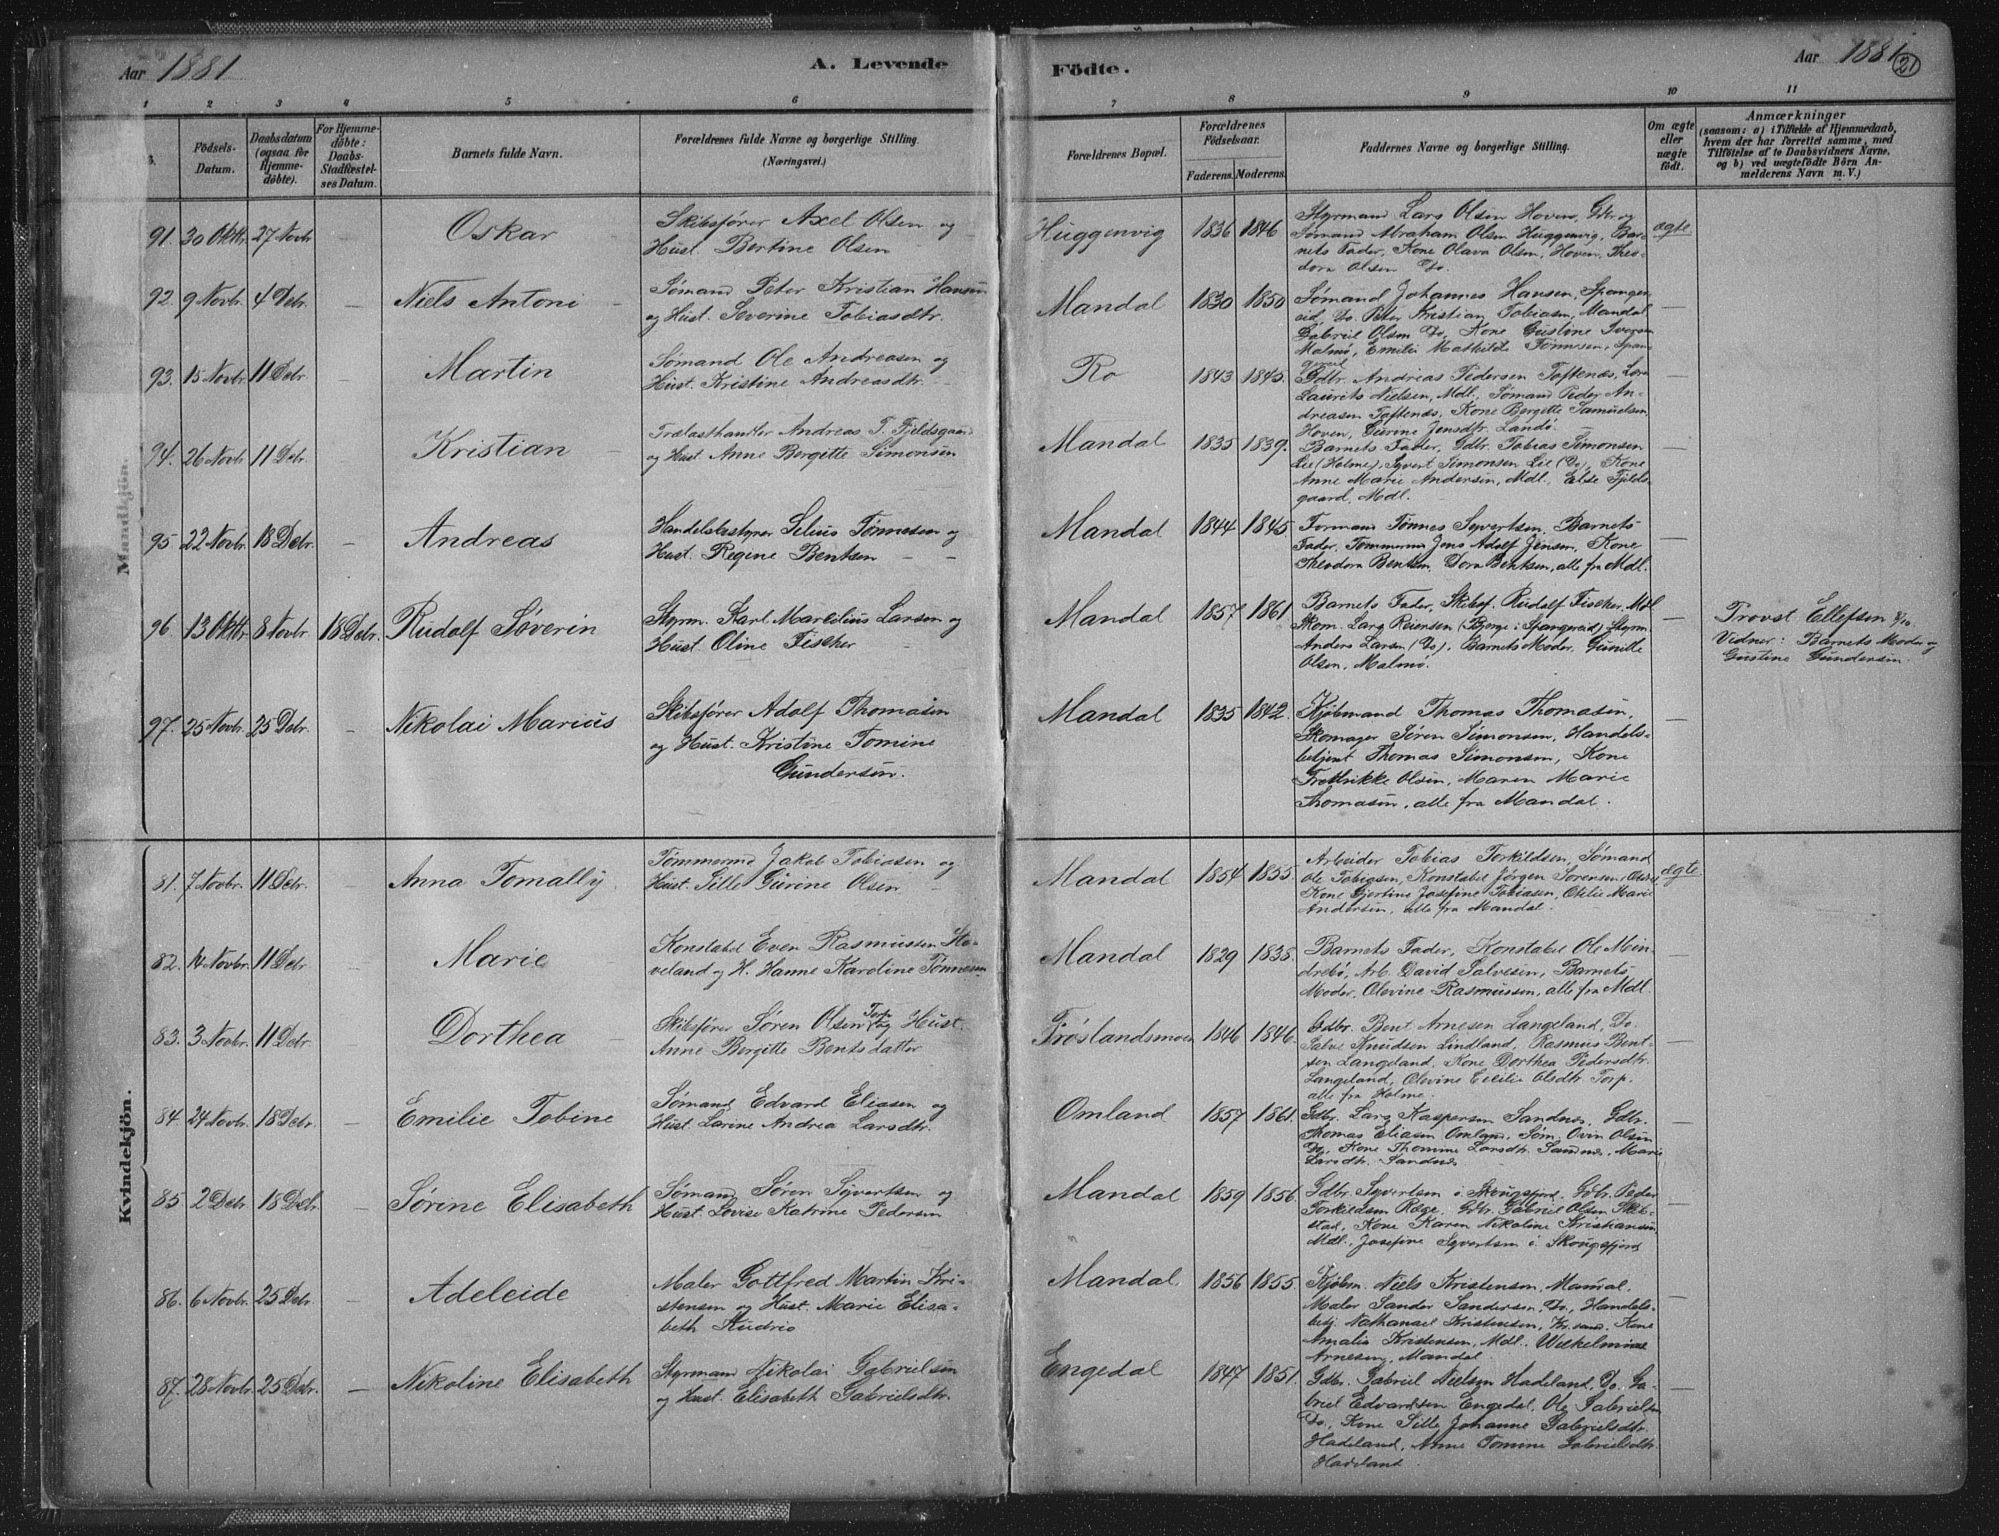 Aar 1881
A. Levende
Födte.
Aar 1881
21
1 2 3 4 5 6 7 8 9 10 11
Födsels-
Datum.
Daabsdatum
(ogsaa for
Hjemme-
döbte).
For Hjemme-
döbte:
Daabs-
Stadfæstel-
ses Datum.
Barnets fulde Navn.
Forældrenes fulde Navne og borgerlige Stilling.
(Næringsvei.)
Forældrenes Bopæl.
Forældrenes
Födselsaar.
Faderens. Moderens.
Faddernes Navne og borgerlige Stilling.
Om ægte
eller
uægte
födt.
Anmærkninger
(saasom: a) i Tilfælde af Hjemmedaab,
hvem der har forrettet samme, med
Tilföielse af to Daabsvidners Navne,
og b) ved uægtefödte Börn An-
melderens Navn m. V.)
Mandkjön.
91. 30 Oktbr. 27 Novbr — Oskar
Skibsfører Axel Olsen og
Hust. Bertine Olsen
Huggenvig 1836 1846
Styrmand Lars Olsen Hoven, Gdbr. og
Sømand Abraham Olsen Huggenvig, Bar-
nets Fader, Kone Olava Olsen, Hoven, Theo-
dora Olsen Do.
ægte
92. 9 Novbr. 4 Debr. — Niels Antoni
Sømand Peter Kristian Hansen
og Hust. Severine Tobiasdtr.
Mandal 1830 1850
Sømand Johannes Hansen, Spanger-
eid, Do. Peter Kristian Tobiasen, Mandal
Gabriel Olsen Do, Kone Gustine Iversen
Malmø, Emilie Mathilde Tønnesen, Span-
gereid
—
93. 15 Novbr. 11 Debr. — Martin
Sømand Ole Andreasen og
Hust. Kristine Andreasdtr.
Ro 1843 1845.
Gdbr. Andreas Pedersen Toftenæs,
Laurits Nielsen, Mdl., Sømand Peder An-
dreasen Toftenæs, Kone Bergitte Samuelsen
Hoven, Gurine Jensdtr. Landø.
—
94. 26 Novbr. 11 Debr. — Kristian
Trælasthandler Andreas T. Fjeldsgaard
og Hust. Anne Bergitte Simonsen
Mandal 1835 1839.
Barnets Fader, Gdbr. Tobias Simonsen
Lie (Holme), Syvert Simonsen Lie (Do), Kone
Anne Marie Andersen, Mdl., Else Fjelds-
gaard, Mdl.
—
95. 22 Novbr. 18 Debr. — Andreas
Handelsbestyrer Selius Tønnesen og
Hust. Regine Bentsen
Mandal 1844 1845.
Formand Tønnes Syvertsen, Barnets
Fader, Tømmerm. Jens Adolf Jensen, Kone
Theodora Bentsen, Dora Bentsen, alle fra Mdl.
—
96. 13 Oktbr. 8 Novbr. 18 Debr. Rudolf Søverin
Styrm. Karl Marelius Larsen og
Hust. Oline Fischer
Mandal 1857 1861.
Barnets Fader, Skibsf. Rudolf Fischer, Mdl
Skom. Lars Reiersen (Bjerge i Spangereid) Styrm.
Anders Larsen (Do). Barnets Moder, Gunille
Olsen, Malmø.
—
Provst Ellefsen
Vidner: Barnets Moder og
Gustine Gundersen.
97. 25 Novbr. 25 Debr. — Nikolai Marius
Skibsfører Adolf Thomasen
og Hust. Kristine Tomine
Gundersen.
Mandal 1835 1842.
Kjøbmand Thomas Thomasen,
Skomager Søren Simonsen, Handels-
betjent Thomas Simonsen, Kone
Fredrikke Olsen, Maren Marie
Thomasen, alle fra Mandal.
—
Kvindekjön.
81. 7 Novbr. 11 Debr. — Anna Tomally
Tømmermd Jakob Tobiasen og
Hust. Sille Gurine Olsen
Mandal 1854 1855.
Arbeider Tobias Torkildsen, Sømand
Ole Tobiasen, Konstabel Jørgen Sørensen
Kone Gjertine Josefine Tobiasen, Otilie Marie
Andersen, alle fra Mandal.
ægte
82. 14 Novbr. 11 Debr. — Marie
Konstabel Even Rasmussen Sto-
veland og H. Hanne Karoline Tønnesen
Mandal 1829 1835.
Barnets Fader, Konstabel Ole Min-
drebø, Arb. David Salvesen, Barnets
Moder, Olevine Rasmussen, alle fra Mdl.
—
83. 3 Novbr. 11 Debr. — Dorthea
Skibsfører Søren Olsen Torp og Hust.
Anne Bergitte Bentsdatter
Frøslandsmoen 1846 1846.
Gdbr. Bent Arnesen Langeland, Do
Salve Knudsen Lindland, Rasmus Bent-
sen Langeland, Kone Dorthea Pedersdtr.
Langeland, Olevine Cecilie Olsdtr. Torp.
alle fra Holme.
—
84. 24 Novbr. 18 Debr. — Emilie Tobine
Sømand Edvard Eliasen og
Hust. Larine Andrea Larsdtr.
Omland 1857 1861.
Gdbr. Lars Kaspersen Sandnes, Gdbr.
Thomas Eliasen Omland, Søm. Ovin Olsen
Do, Kone Thomine Larsdtr. Sandnes, Marie
Larsdtr. Sandnes
—
85. 2 Debr. 18 Debr. — Sørine Elisabeth
Sømand Søren Syvertsen og
Hust. Lovise Katrine Pedersen
Mandal 1859 1856.
Gdbr. Syvertsen i Skougsfjord, Gdbr. Peder
Torkildsen Røge, Gdbr. Gabriel Olsen Skib-
stad, Kone Karen Nikoline Kristiansen,
Mdl., Josefine Syvertsen i Skougsfjord
—
86. 6 Novbr. 25 Debr. — Adeleide
Maler Gottfred Martin Kri-
stensen og Hust. Marie Elisa-
beth Hudrio
Mandal 1856 1855.
Kjøbm. Niels Kristensen, Mandal,
Maler Sander Sandersen, Do., Handels-
betj. Nathanael Kristensen, Kr.sand. Kone
Amalia Kristensen, Mdl. Wilhelmine
Arnesen, Mandal.
—
87. 28 Novbr. 25 Debr. — Nikoline Elisabeth
Styrmand Nikolai Gabrielsen
og Hust. Elisabeth Gabrielsdtr.
Engedal 1847 1851.
Gdbr. Gabriel Nielsen Hadeland, Do. Ga-
briel Edvardsen Engedal, Ole Gabrielsen
Do., Kone Sille Johanne Gabrielsdtr.
Hadeland, Anne Tomine Gabrielsdtr
Hadeland.
—